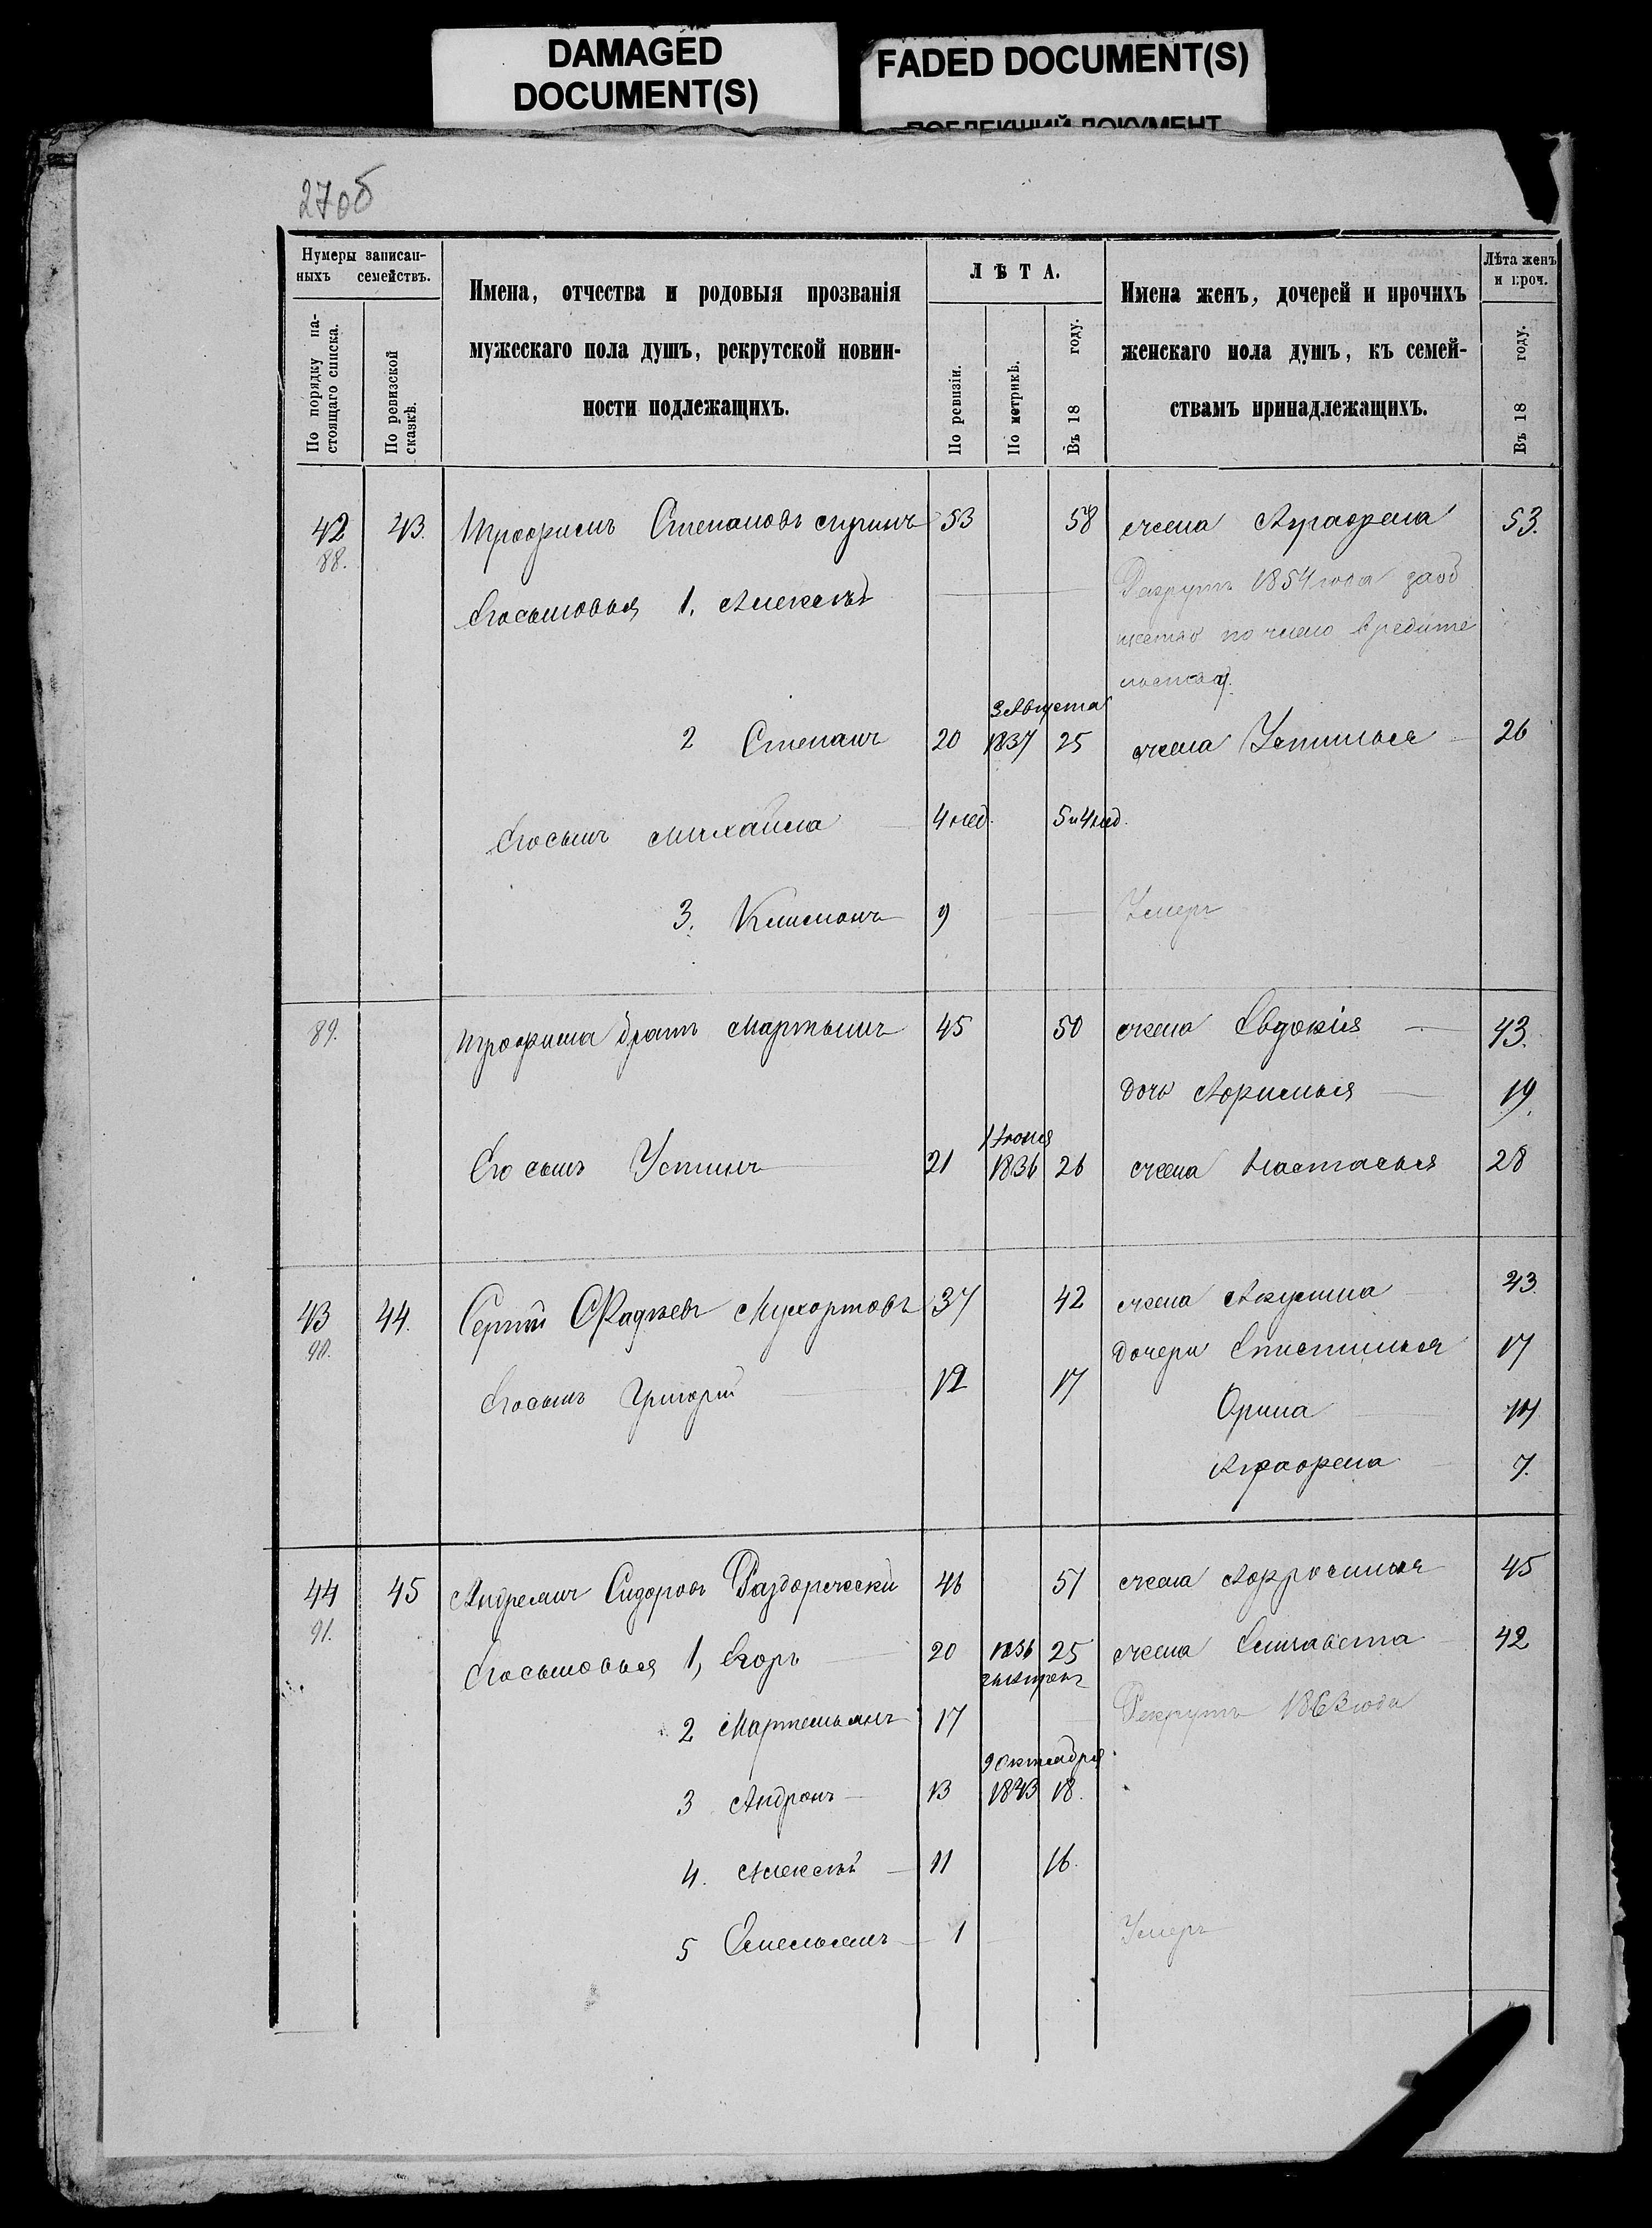 DAMAGED
DOCUMENT(S)
FADED DOCUMENT(S)
ПОБЛЕКШИЙ ДОКУМЕНТ
27об
Нумеры записан-
ныхъ семействъ.
По порядку на-
стоящаго списка.
По ревизской
сказкѣ.
Имена, отчества и родовыя прозванія
мужескаго пола душъ, рекрутской повин-
ности подлежащихъ.
ЛѢТА.
По ревизіи.
По метрикѣ.
Въ 18 году.
Имена женъ, дочерей и прочихъ
женскаго пола душъ, къ семей-
ствамъ принадлежащихъ.
Лѣта женъ
и проч.
Въ 18 году.
42 43. Трофимъ Степановъ 53 58 жена Аграфена 53.
88.
Его сыновья 1. Алексѣй Рекрутъ 1854 года
3 Августа
2 Степанъ 20 1837 25 жена Устинья 26
Его сынъ Михайла 4 нед. 5 и 4 нед.
3. Климонъ 9 Умеръ
89. Трофима братъ Мартынъ 45 50 жена Евдокія 43.
дочь Афимья 19.
1 Іюня
Его сынъ Устинъ 21 1836 26 жена Настасья 28
43 44. Сергій Фадѣевъ Мухортовъ 37 42 жена Акулина 43
90.
дочери Епистинья 17
Его сынъ Григорій 12 17
Орина 14
Аграфена 7.
44 45 Андреянъ Сидоровъ Раздорчески 46 51 жена Афросинья 45
91.
Его сыновья 1, Егоръ 20 1836 25 жена Елисавета 42
2 Мартемьянъ 17 Рекрутъ 1863 года
9 октября
3 Андронъ 13 1843 18.
4. Алексѣй 11 16.
5 Емельянъ 1 Умеръ